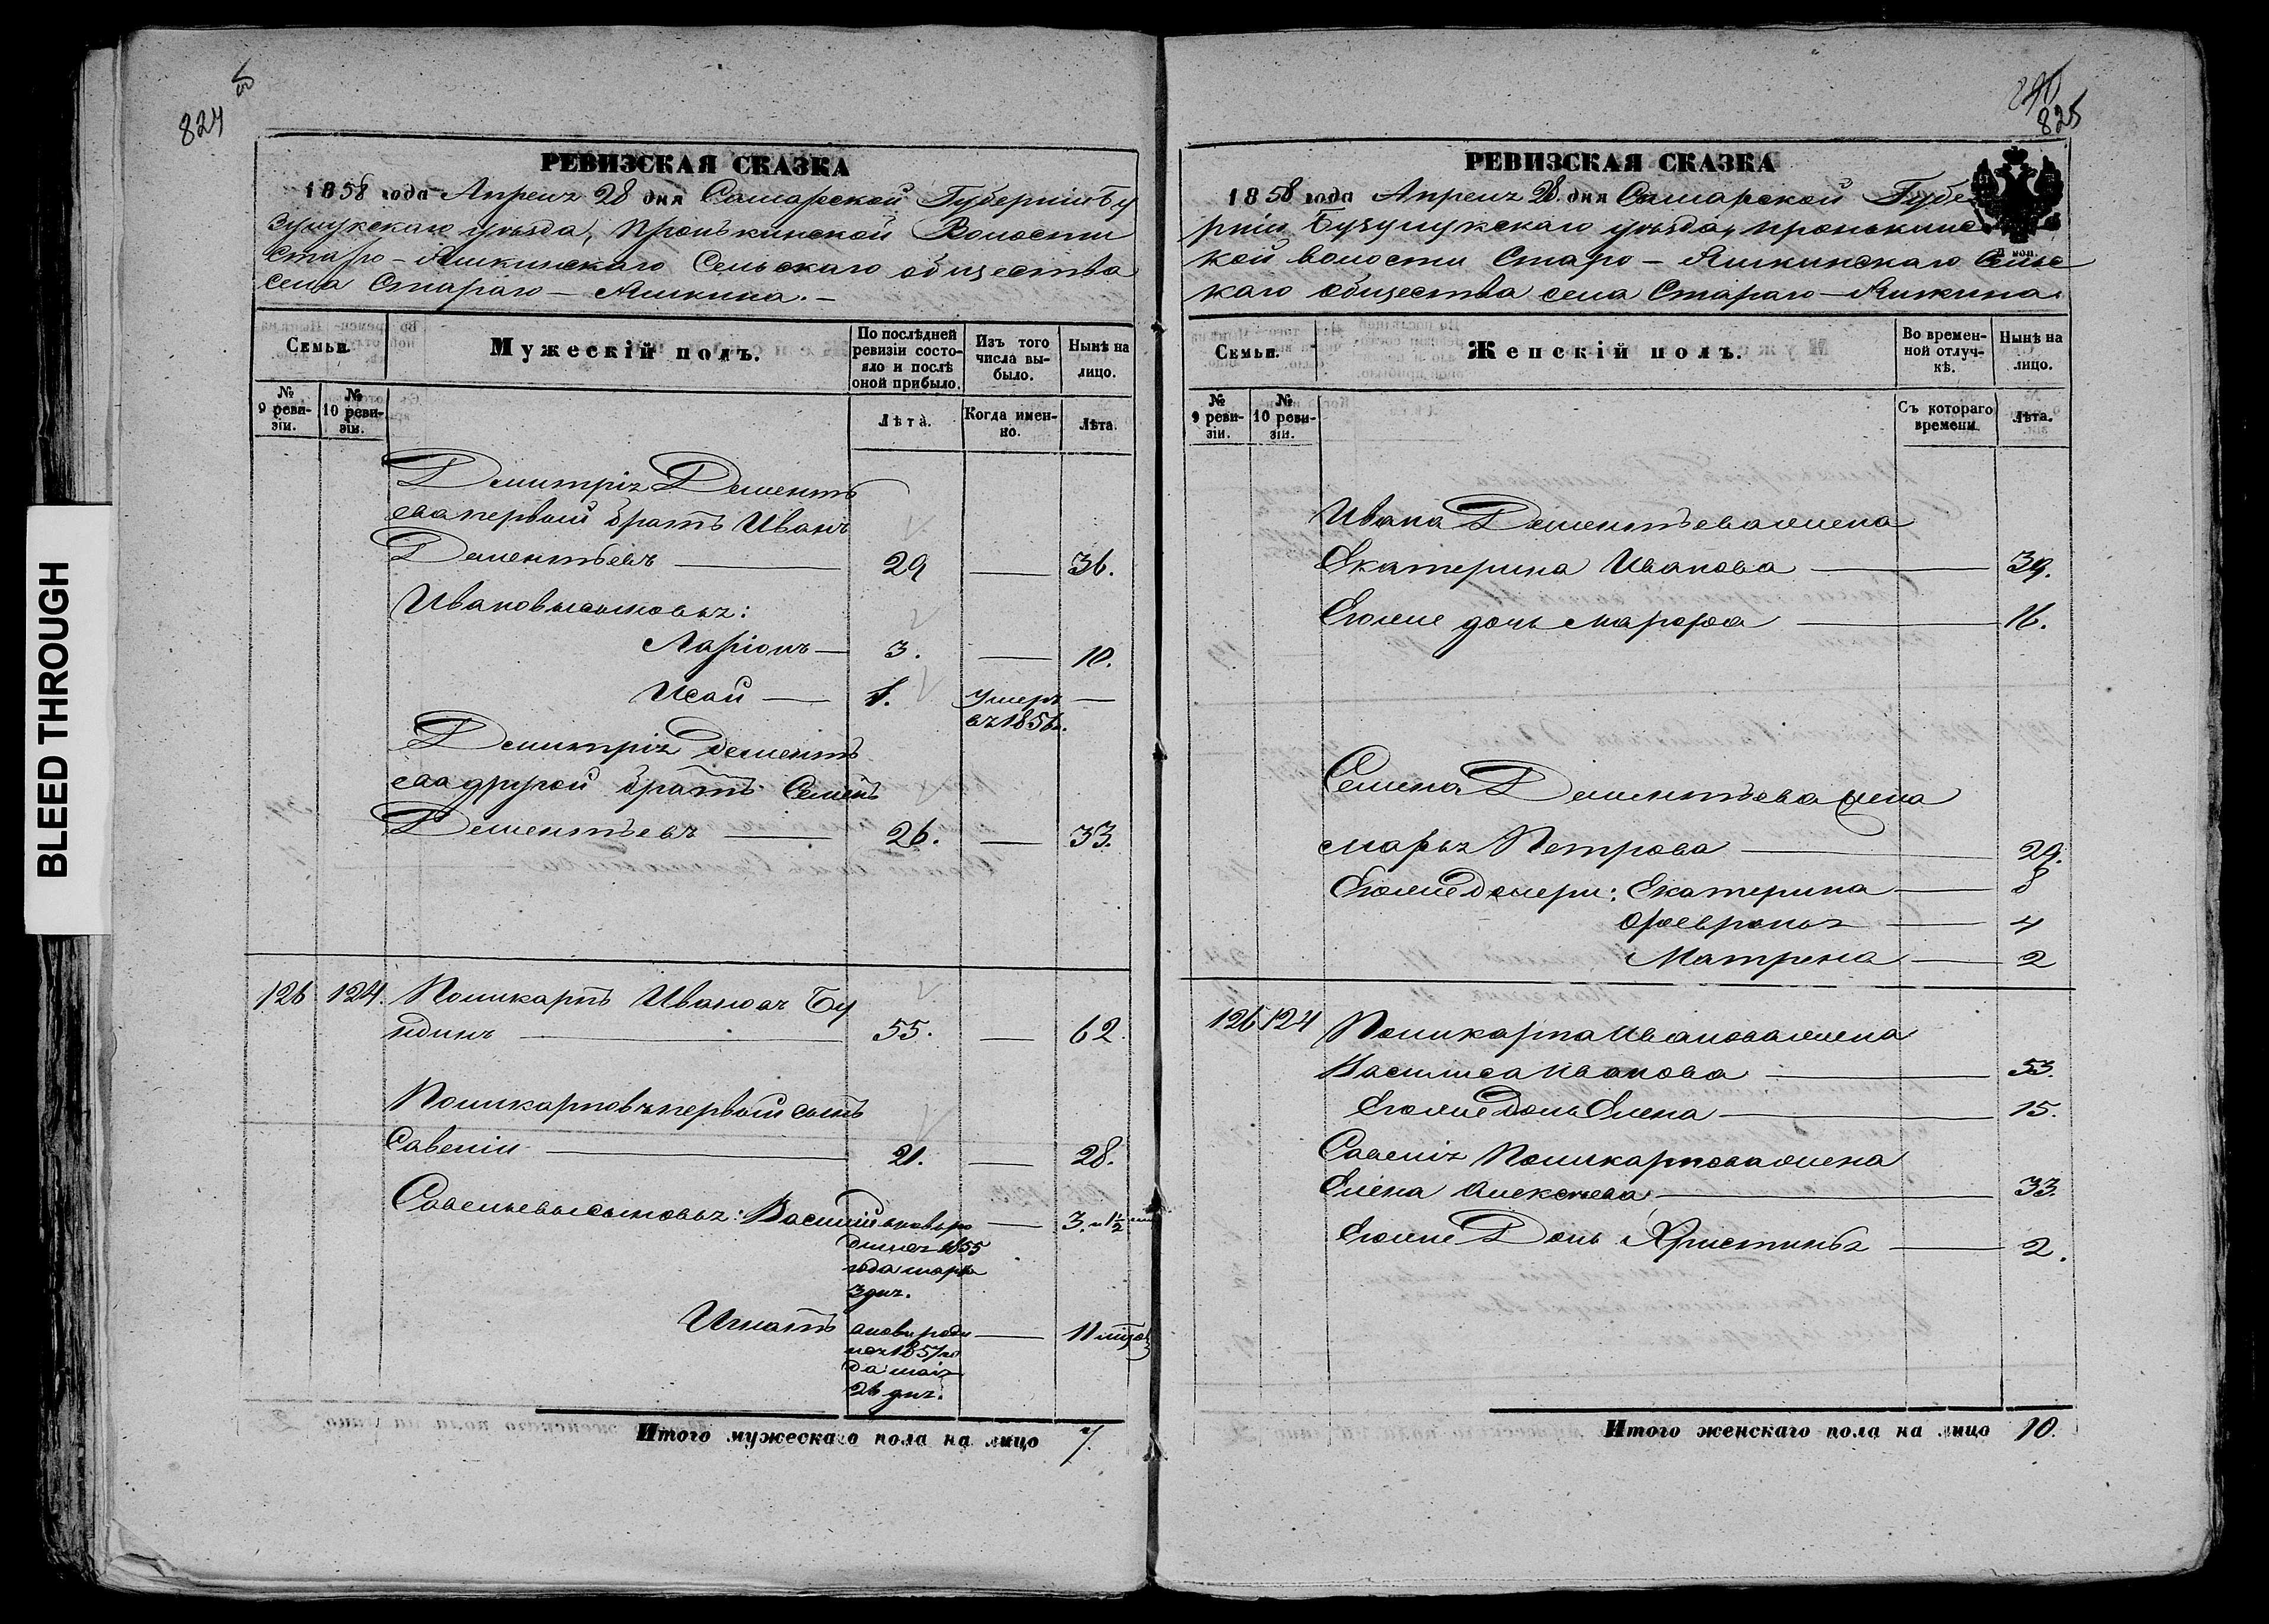 BLEED THROUGH
824
РЕВИЗСКАЯ СКАЗКА
1858 года Апреля 28 дня Самарской Губерніи Бу
зулукскаго уѣзда, Пронькинской Волости
Старо-Яшкинскаго Сельскаго общества
села Стараго-Яшкина.-
Семьи.
Мужескій полъ.
По послѣдней ревизіи состояло и послѣ оной прибыло.
Изъ того числа выбыло.
Нынѣ на лицо.
№ 9 ревизіи.
№ 10 ревизіи.
Лѣта.
Когда именно.
Лѣта.
Дмитрія Демента
ева первый братъ Иванъ
Дементьевъ 29 — 36.
Ивановы сыновья:
Ларіонъ — 3. — 10.
Исай — 1. умеръ —
въ 1856.
Дмитрія Демент
ева другой братъ Семенъ
Дементьевъ — 26. — 33.
126 124. Поликарпъ Ивановъ Бу
ндинъ — 55. — 62.
Поликарповъ первый сынъ
Савелій — 21. — 28.
Савельевы сыновья: Василій вновь ро — 3. и 1½
дился 1855
года марта
3 дня.
Игнатъ вновь роди — 11 мѣсяцов
лся 1857 го
да маія
26 дня.
Итого мужескаго пола на лицо 7.
825
РЕВИЗСКАЯ СКАЗКА
1858 года Апреля 28 дня Самарской Губе
рніи Бузулукскаго уѣзда, Пронькинс
кой волости Старо-Яшкинскаго Сельс
каго общества села Стараго-Яшкина.
Семьи.
Женскій полъ.
Во временной отлучкѣ.
Нынѣ на лицо.
№ 9 ревизіи.
№ 10 ревизіи.
Съ котораго времени.
Лѣта.
Ивана Дементьева жена
Екатерина Иванова — 39.
Ихъ дочь Марфа — 16.
Семена Дементьева жена
Марья Петрова — 29.
Ихъ дочери: Екатерина — 8
Февронья — 4
Матрена — 2
126 124 Поликарпа Иванова жена
Василиса Иванова — 53.
Ихъ дочь Елена — 15.
Савелія Поликарпова жена
Елена Алексѣева — 33.
Ихъ Дочь Христинья — 2.
Итого женскаго пола на лицо 10.